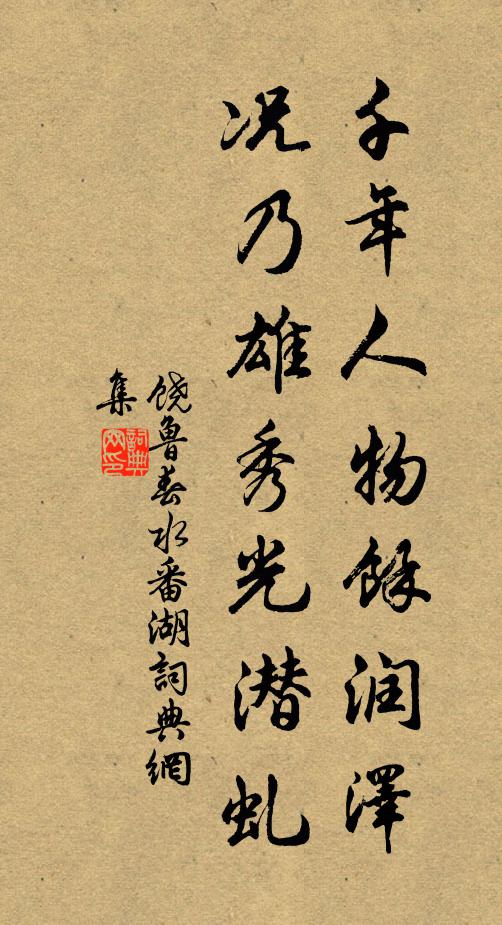 千年人物馀润澤
况乃雄秀光潜虬
饶鲁春水番湖詞典網
集
詞典网印